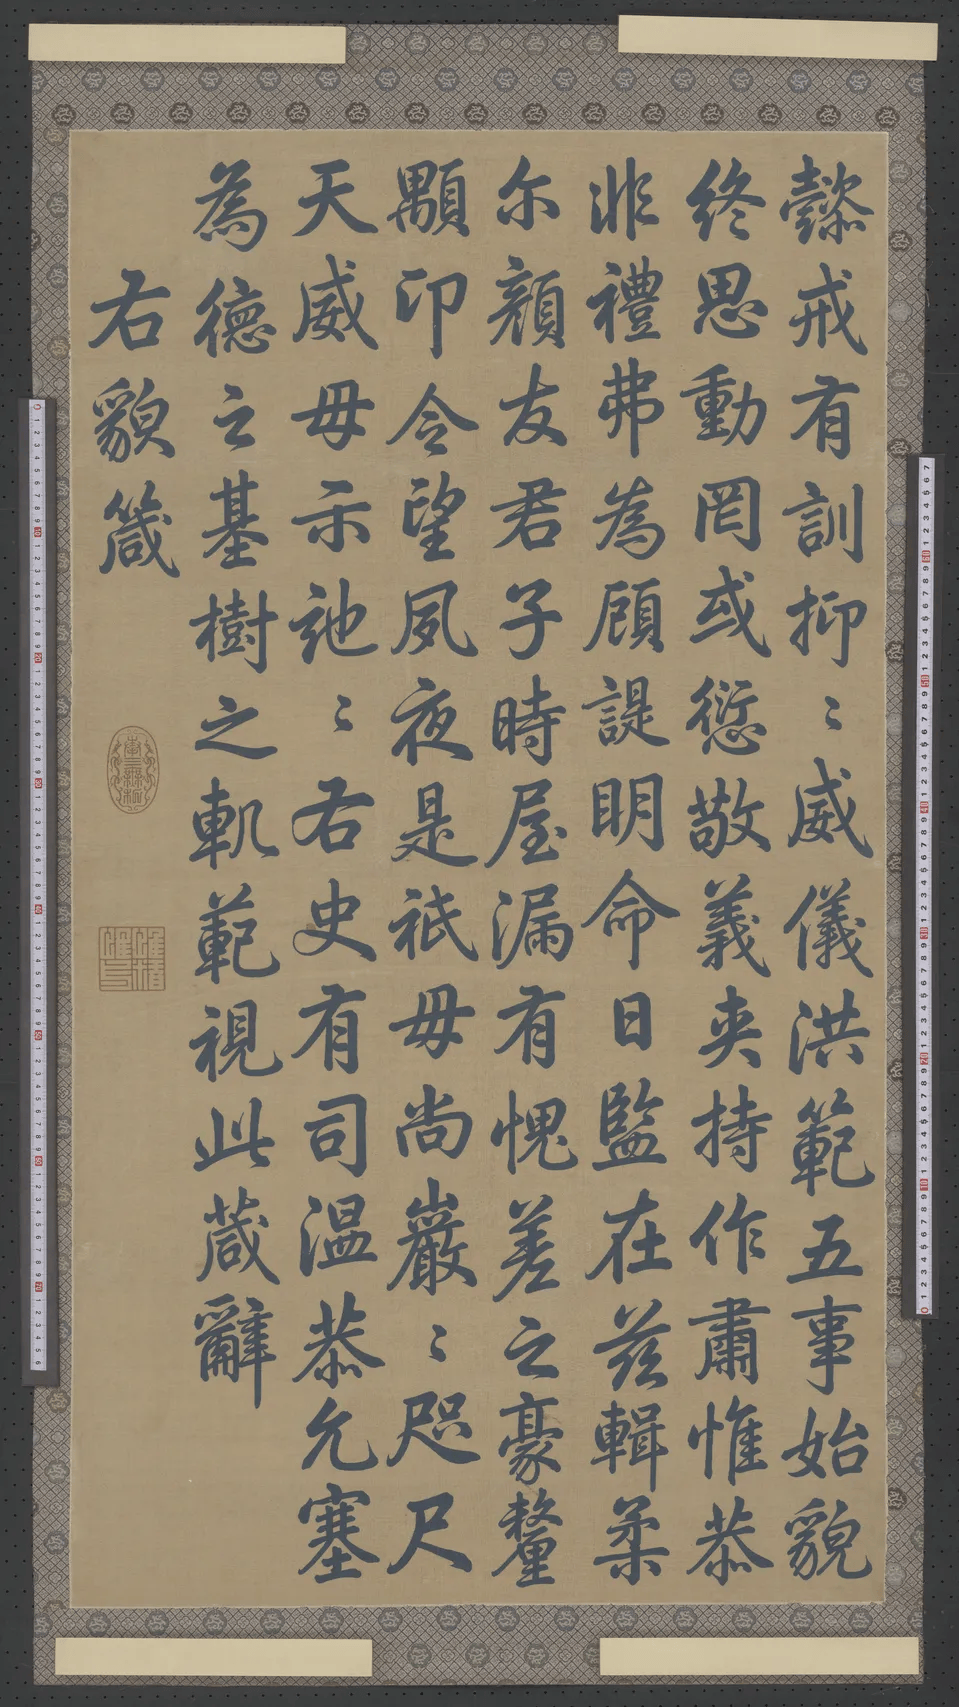 懿戒有訓抑〻威儀洪範五事始貌
終思動罔或愆敬義夾持作肅惟恭
非禮弗為顧諟明命日監在茲輯柔
尔顏友君子時屋漏有愧差之豪釐
顒卬令望夙夜是祗毋尚巖〻咫尺
天威毋示訑〻右史有司温恭允塞
為德之基樹之軌範視此葴辭
右貌箴